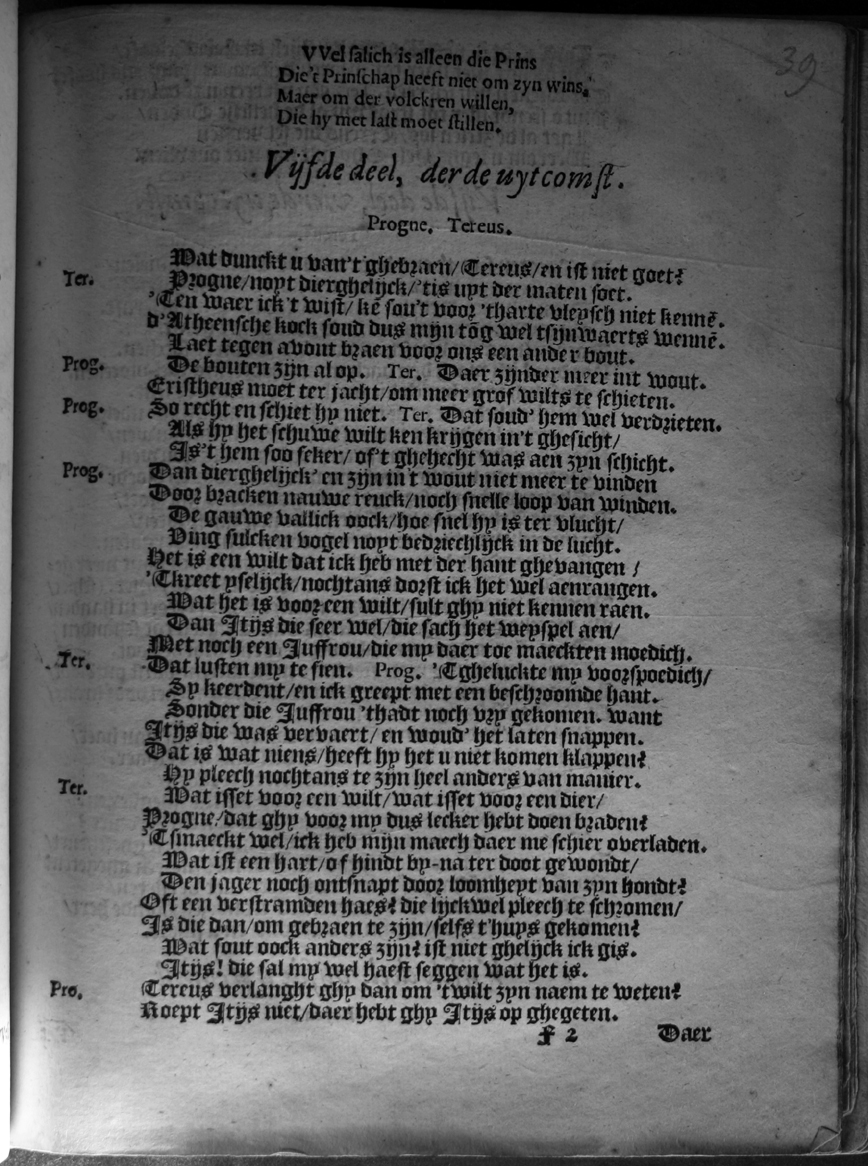 39
VVel salich is alleen die Prins
Die't Prinschap heeft niet om zyn wins,
Maer om der volckren willen,
Die hy met last moet stillen.
Vijfde deel, derde uytcomst.
Progne. Tereus.
Wat dunckt u van't ghebraen/Tereus/en ist niet goet?
Ter. Progne/noyt dierghelijck/'tis uyt der maten soet.
'Ten waer ick't wist/ kē sou't voor 'tharte vleysch niet kennē.
d'Atheensche kock soud dus mijn tōg wel tsijnwaerts wennē.
Laet tegen avont braen voor ons een ander bout.
Prog. De bouten zijn al op. Ter. Daer zijnder meer int wout.
Eristheus moet ter jacht/om meer grof wilts te schieten.
Prog. So recht en schiet hy niet. Ter. Dat soud' hem wel verdrieten.
Als hy het schuwe wilt ken krijgen in't ghesicht/
Is't hem soo seker/ of't ghehecht was aen zyn schicht.
Prog. Dan dierghelijck' en zijn in't wout niet meer te vinden
Door bracken nauwe reuck/noch snelle loop van winden.
De gauwe vallick oock/hoe snel hy is ter vlucht/
Ving sulcken vogel noyt bedriechlijck in de lucht.
Het is een wilt dat ick heb met der hant ghevangen /
'Tkreet yselijck/nochtans dorst ick het wel aenrangen.
Wat het is voor een wilt/sult ghy niet kennen raen.
Dan Itijs die seer wel/die sach het weyspel aen/
Met noch een Juffrou/die my daer toe maeckten moedich.
Ter. Dat lusten my te sien. Prog. 'Tgheluckte my voorspoedich/
Sy keerdent/en ick greept met een beschroomde hant.
Sonder die Juffrou 'thadt noch vry gekomen. want
Itijs die was vervaert/ en woud' het laten snappen.
Dat is wat niens/heeft hy het u niet komen klappen?
Hy pleech nochtans te zijn heel anders van manier.
Ter. Wat isset voor een wilt/wat isset voor een dier/
Progne/dat ghy voor my dus lecker hebt doen braden?
'Tsmaeckt wel/ick heb mijn maech daer me schier overladen.
Wat ist een hart/of hindt by-na ter doot gewondt/
Den jager noch ontsnapt door loomheyt van zyn hondt?
Oft een verstramden haes? die lijckwel pleech te schromen/
Is die dan/om gebraen te zijn/selfs t'huys gekomen?
Wat sout oock anders zijn? ist niet ghelijck ick gis.
Itijs! die sal my wel haest seggen wat het is.
Pro. Tereus verlanght ghy dan om 'twilt zyn naem te weten?
Roept Itijs niet/daer hebt ghy Itijs op ghegeten.
f 2 Daer